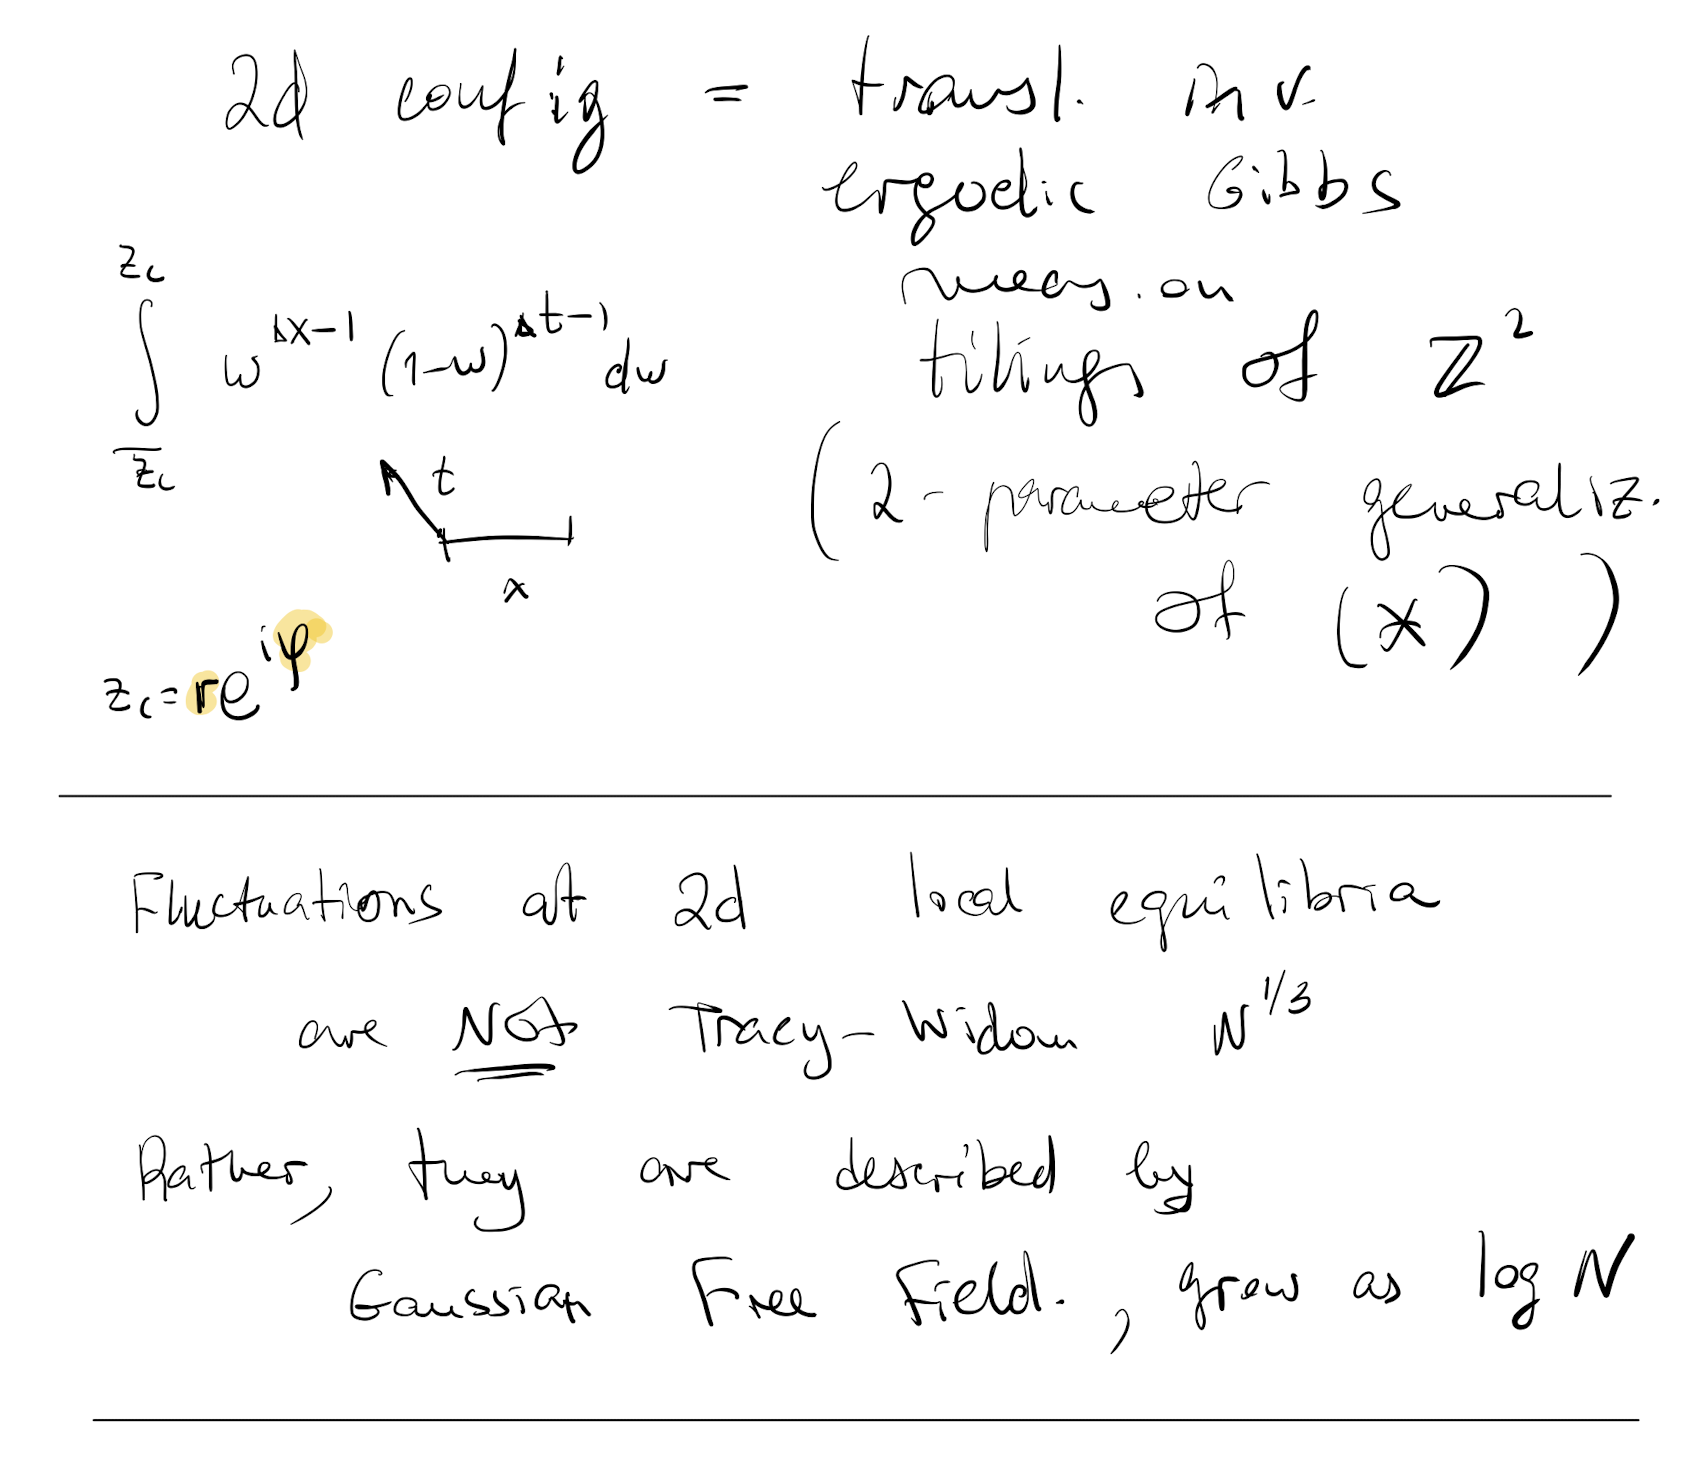 2d config = transl. inv.
ergodic Gibbs
meas. on
tilings of ℤ²
(2-parameter generaliz.
of (*))
∫_{\overline{z_c}}^{z_c} w^{Δx-1} (1-w)^{Δt-1} dw
t
x
z_c = re^{iφ}
Fluctuations at 2d local equilibria
are NOT Tracy-Widom N^{1/3}
Rather, they are described by
Gaussian Free Field. , grow as log N